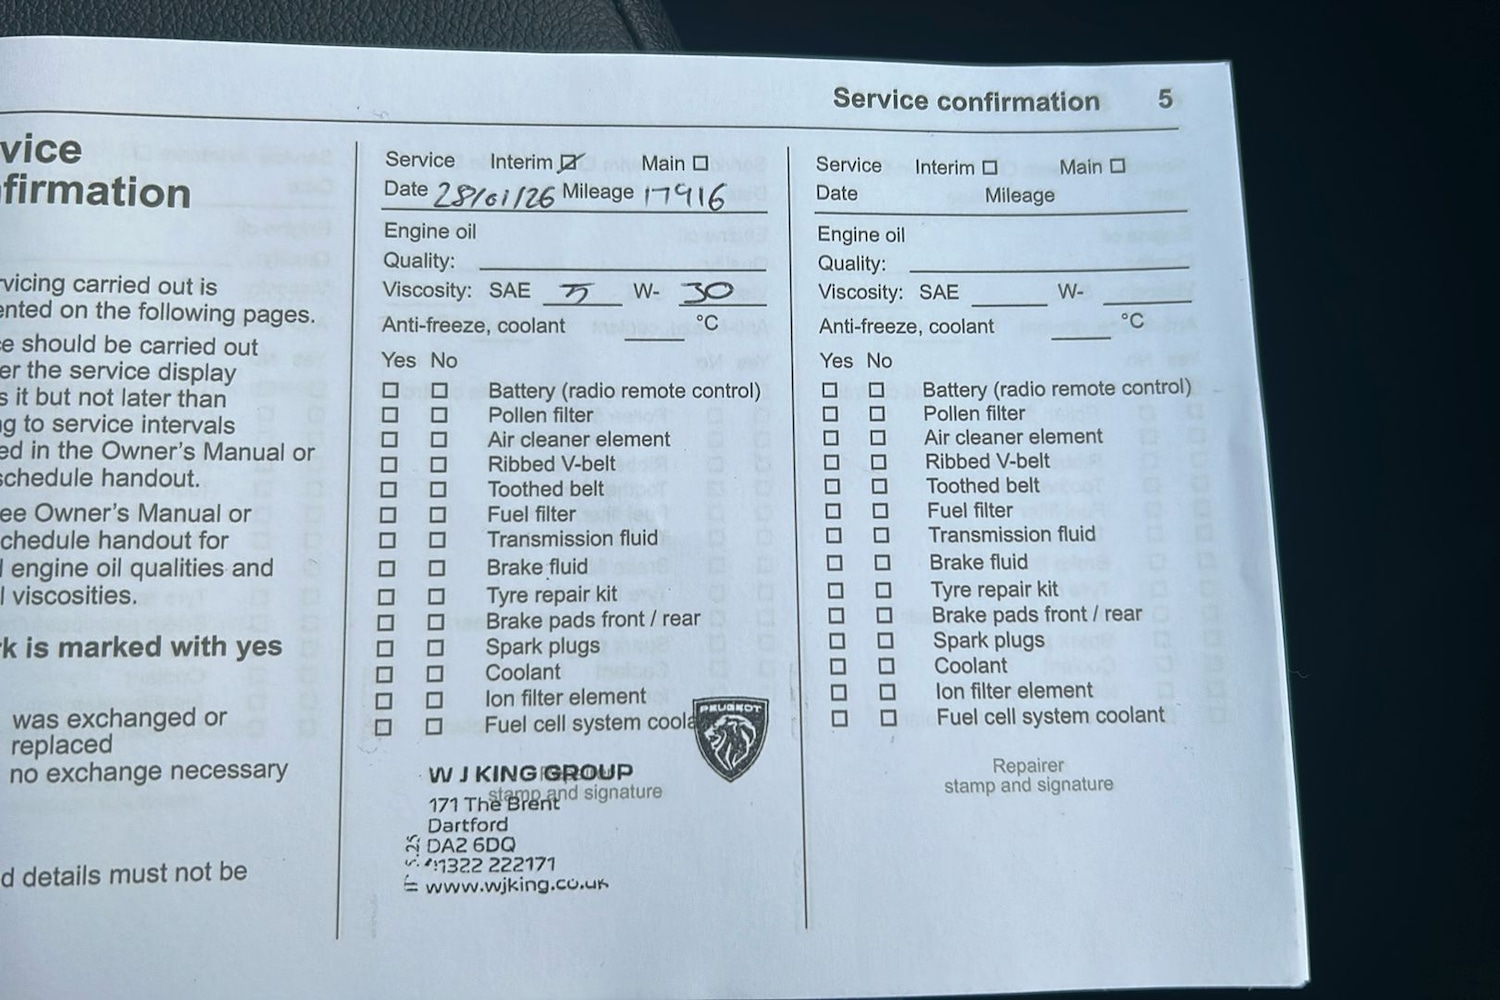 Service confirmation 5
vice
firmation
rvicing carried out is
ented on the following pages.
e should be carried out
er the service display
s it but not later than
ng to service intervals
ed in the Owner's Manual or
schedule handout.
ee Owner's Manual or
chedule handout for
l engine oil qualities and
l viscosities.
rk is marked with yes
was exchanged or
replaced
no exchange necessary
d details must not be
Service Interim Main
Date 28/01/26 Mileage 17916
Engine oil
Quality:
Viscosity: SAE 5 W- 30
Anti-freeze, coolant °C
Yes No
Battery (radio remote control)
Pollen filter
Air cleaner element
Ribbed V-belt
Toothed belt
Fuel filter
Transmission fluid
Brake fluid
Tyre repair kit
Brake pads front / rear
Spark plugs
Coolant
Ion filter element
Fuel cell system coola
PEUGEOT
W J KING GROUP
Repairer
stamp and signature
171 The Brent
Dartford
DA2 6DQ
01322 222171
www.wjking.co.uk
Service Interim Main
Date Mileage
Engine oil
Quality:
Viscosity: SAE W-
Anti-freeze, coolant °C
Yes No
Battery (radio remote control)
Pollen filter
Air cleaner element
Ribbed V-belt
Toothed belt
Fuel filter
Transmission fluid
Brake fluid
Tyre repair kit
Brake pads front / rear
Spark plugs
Coolant
Ion filter element
Fuel cell system coolant
Repairer
stamp and signature